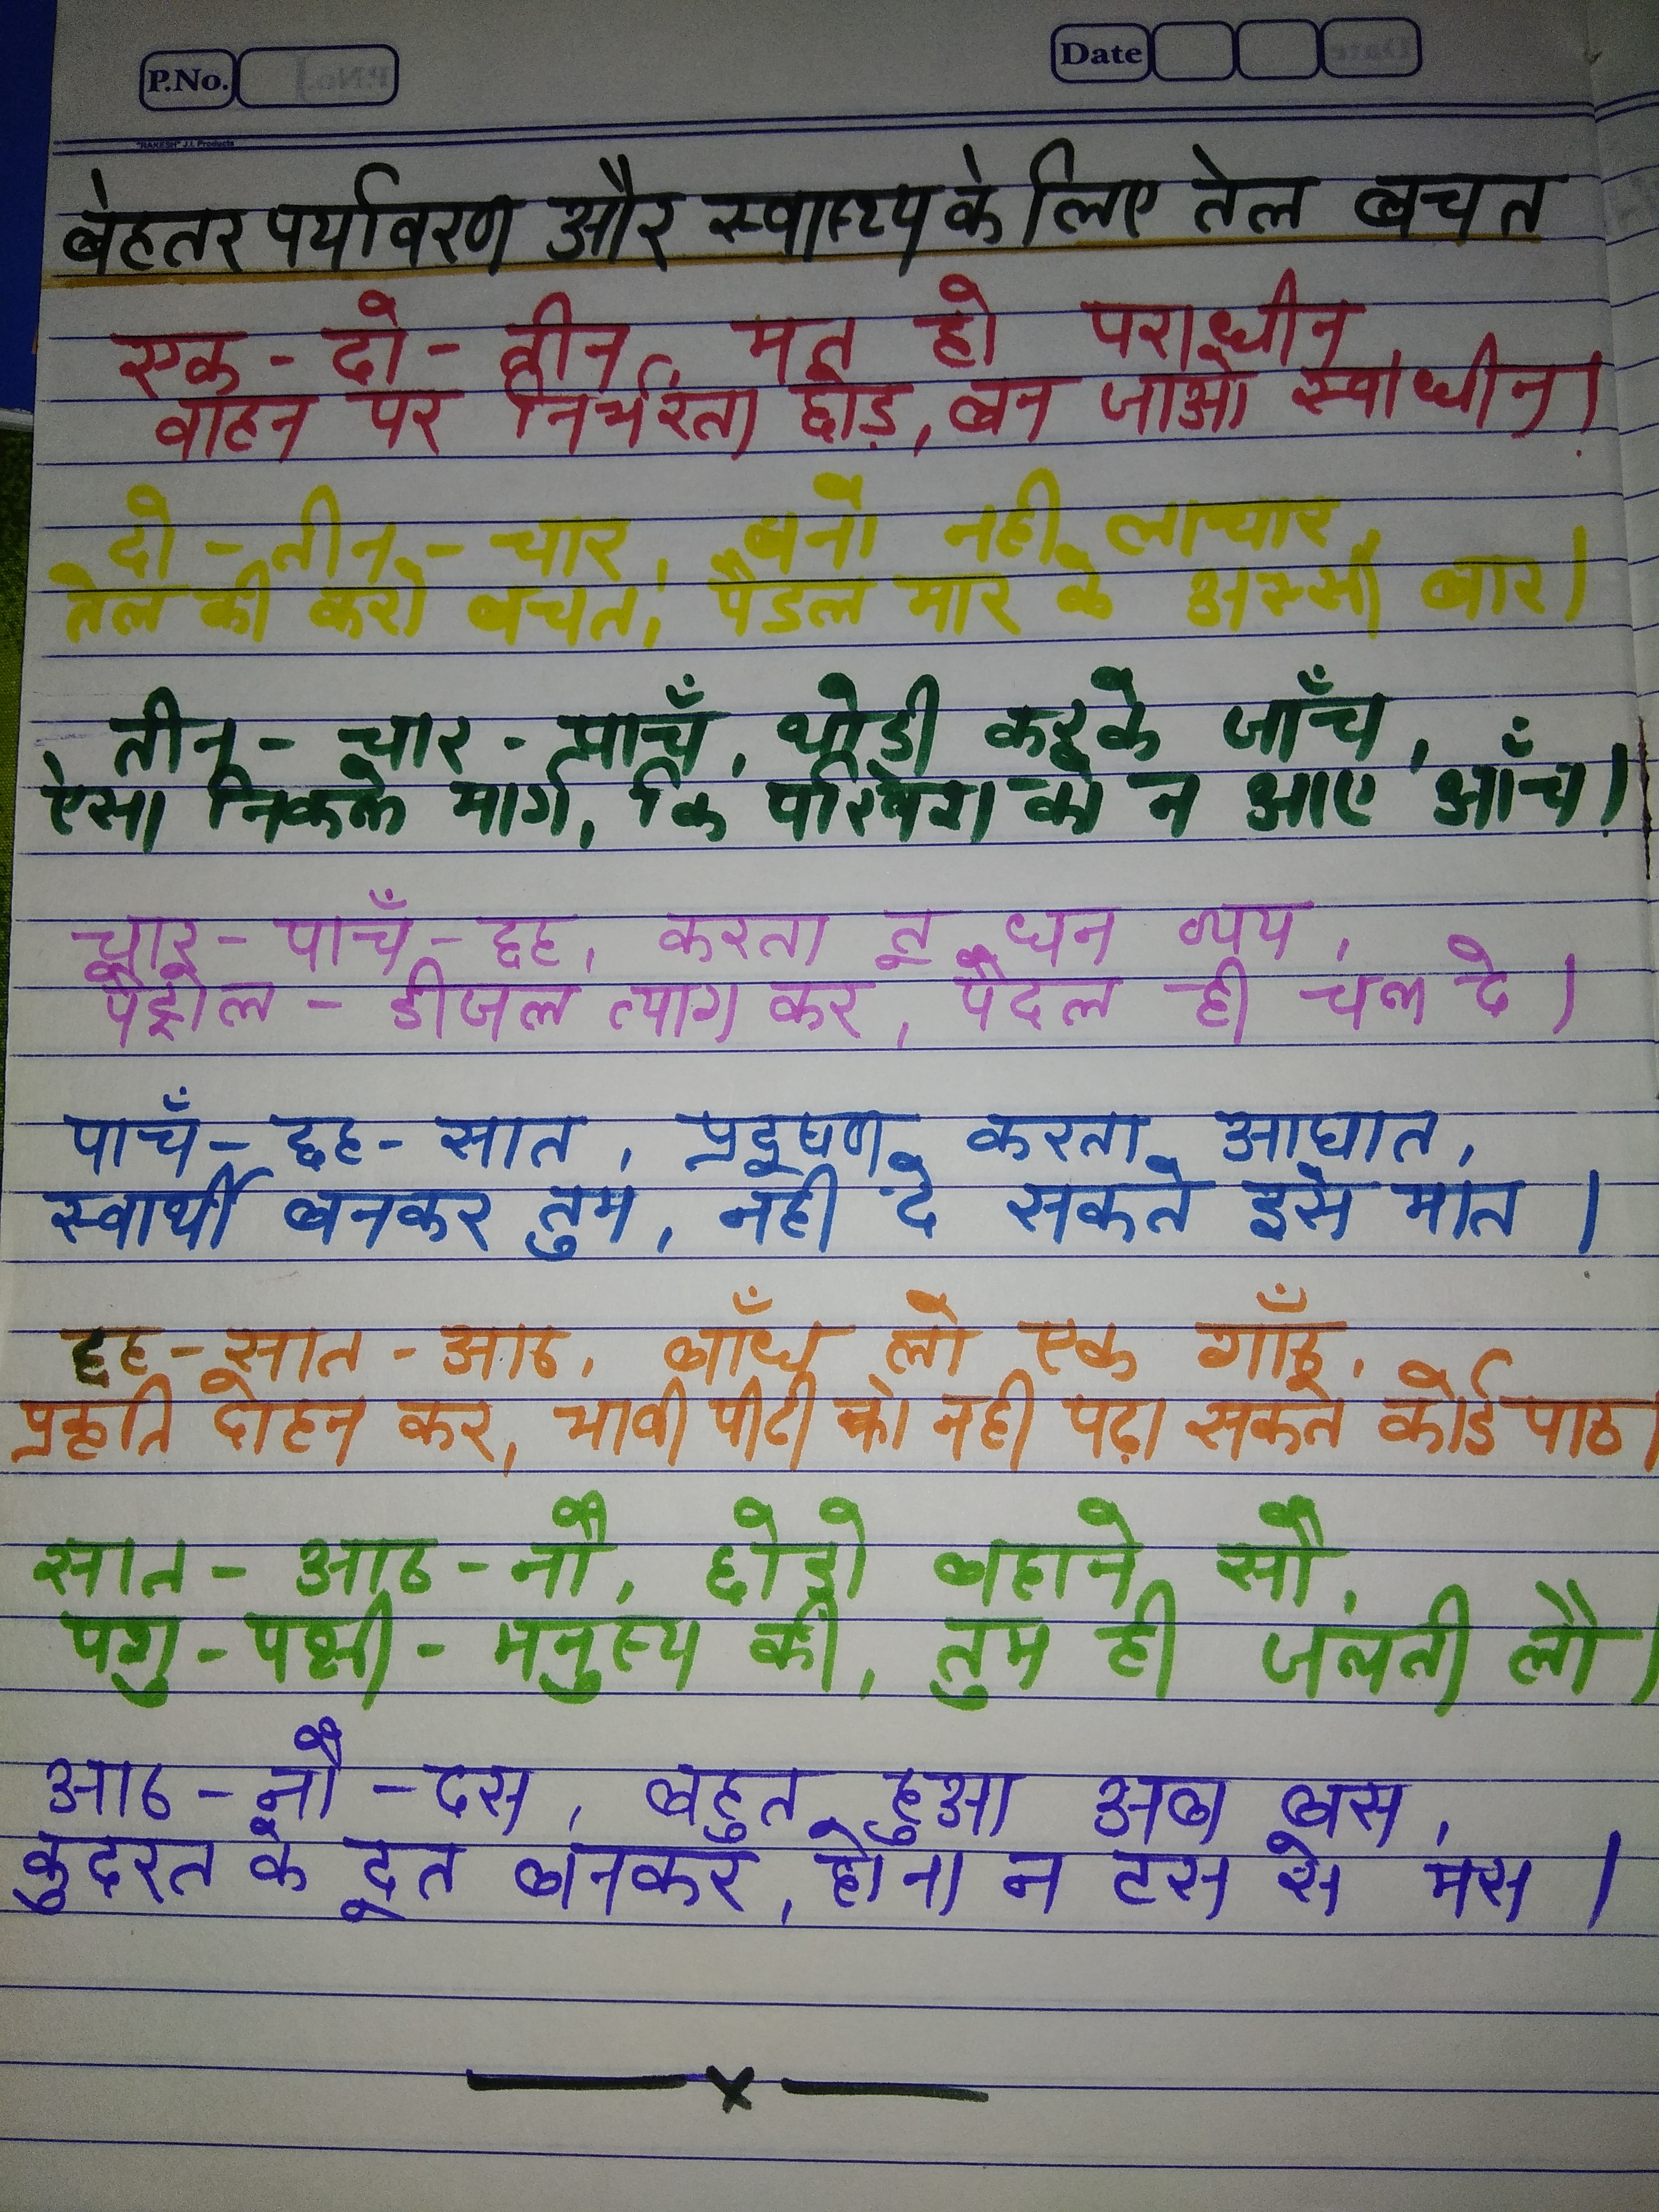 P.No.
Date
"RAKESH" J.I. Products
बेहतर पर्यावरण और स्वास्थ्य के लिए तेल बचत
एक - दो - तीन, मत हो पराधीन,
वाहन पर निर्भरता छोड़, बन जाओ स्वाधीन।
दो - तीन - चार, बनो नही लाचार,
तेल की करो बचत, पैडल मार के अस्सी बार।
तीन - चार - पाचँ, थोडी करके जाँच,
ऐसा निकले मार्ग, कि परिवेश को न आए आँच।
चार - पाचँ - छह, करता तू धन व्यय,
पेट्रोल - डीजल त्याग कर, पैदल ही चल दे।
पाचँ - छह - सात, प्रदूषण करता आघात,
स्वार्थी बनकर तुम, नही दे सकते इसे मात।
छह - सात - आठ, बाँध लो एक गाँठ,
प्रकृति दोहन कर, भावी पीढी को नही पढ़ा सकते कोई पाठ।
सात - आठ - नौ, छोडो बहाने सौ,
पशु - पक्षी - मनुष्य की, तुम ही जलती लौ।
आठ - नौ - दस, बहुत हुआ अब बस,
कुदरत के दूत बनकर, होना न टस से मस।
—x—